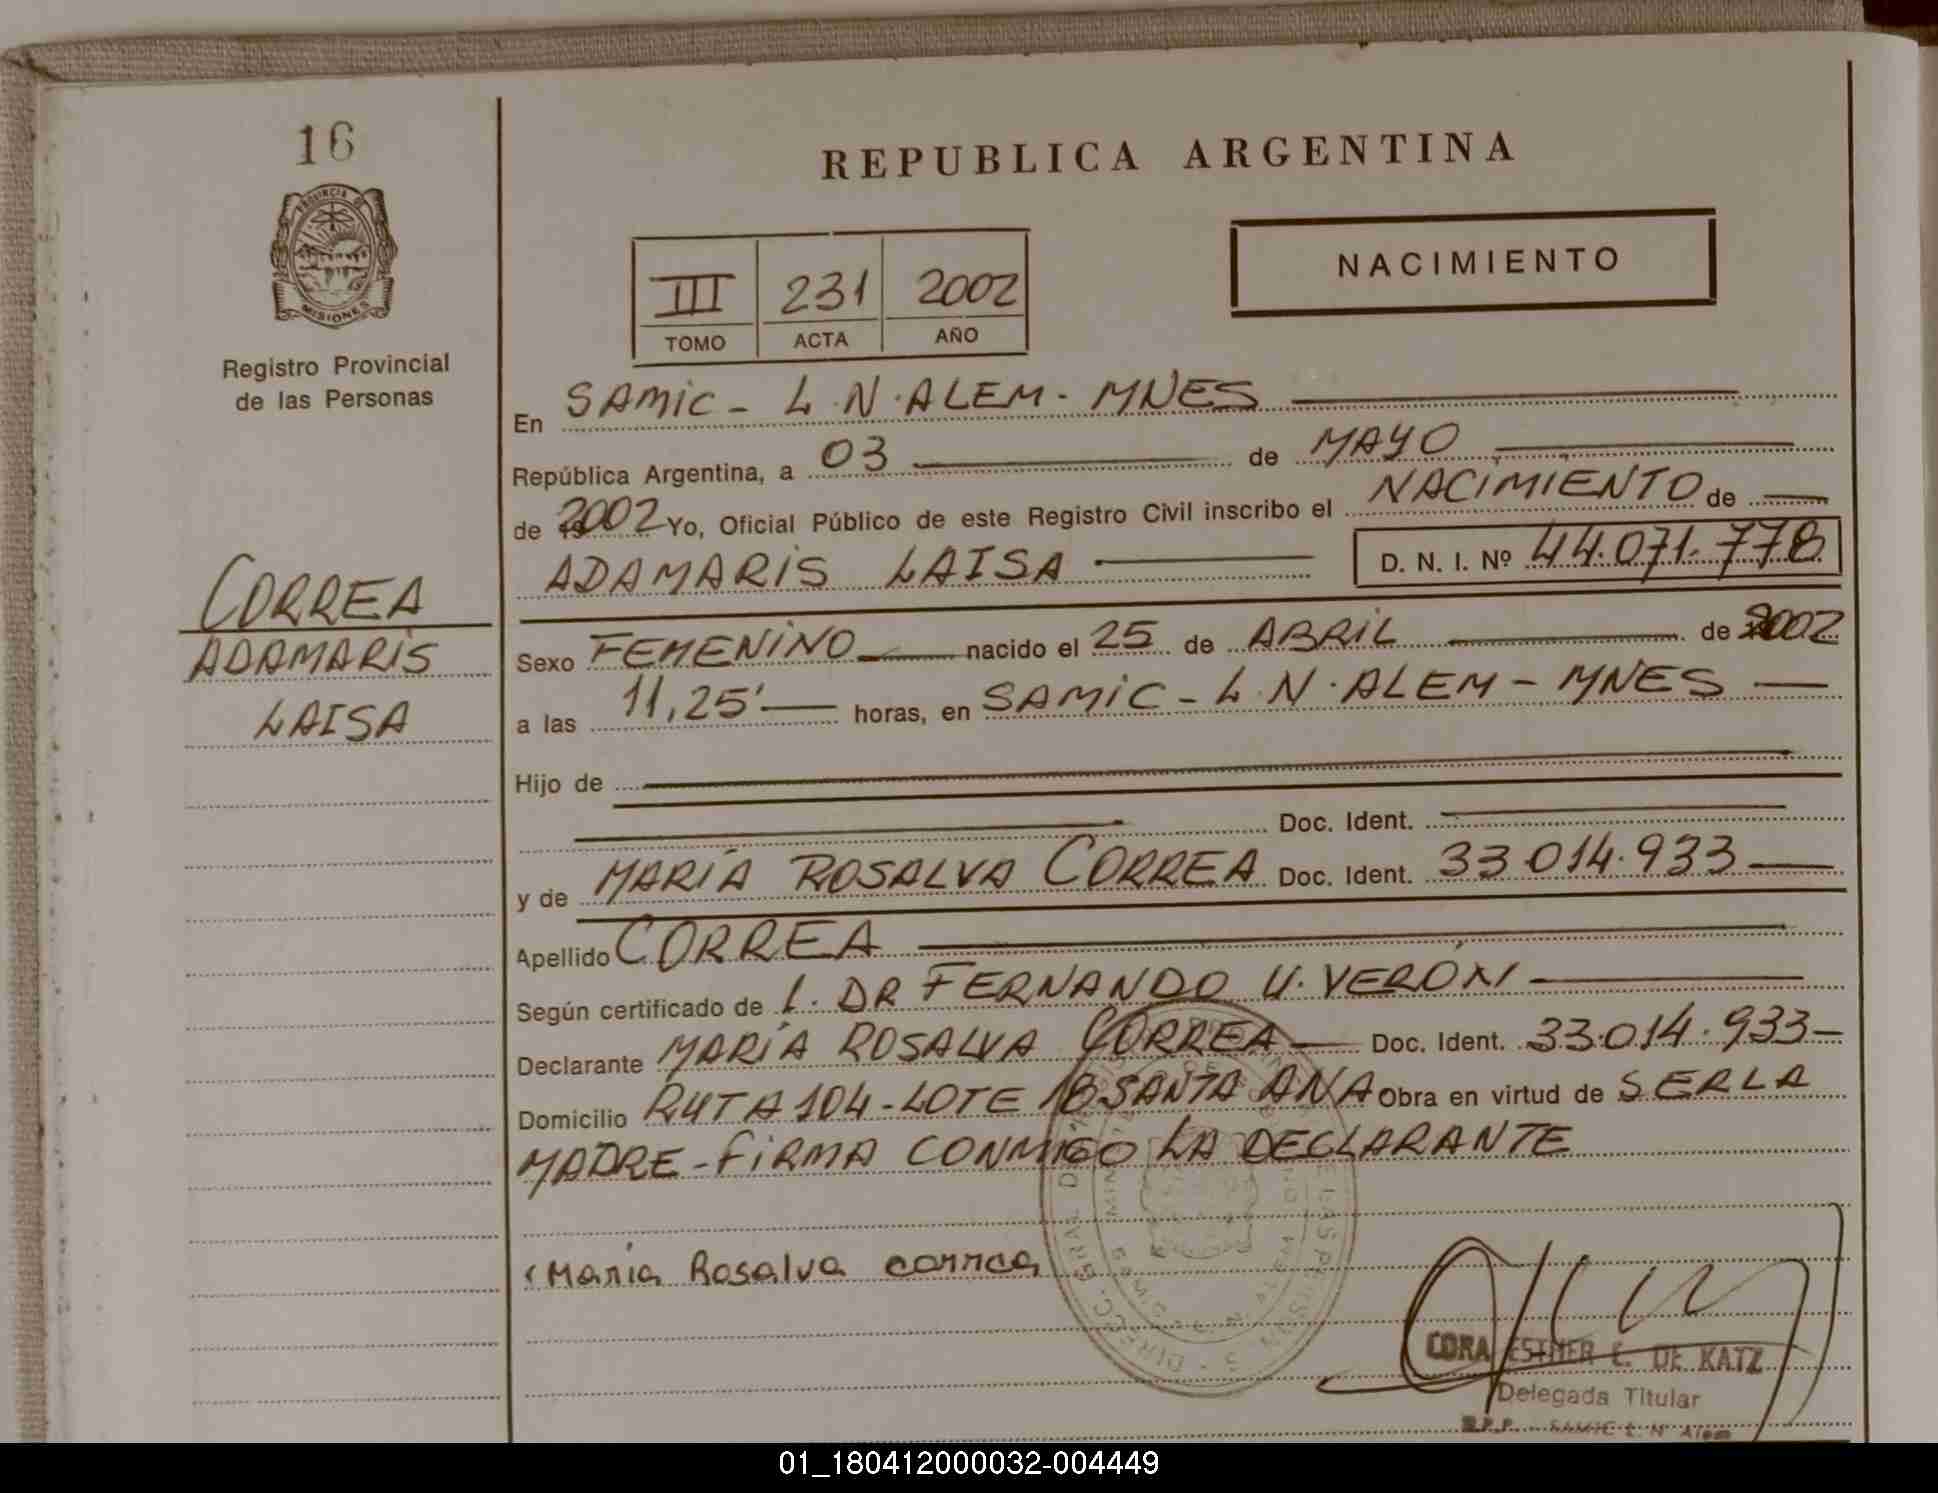 16
REPUBLICA ARGENTINA
PROVINCIA DE
MISIONES
Registro Provincial
de las Personas
III 231 2002
TOMO ACTA AÑO
NACIMIENTO
En SAMIC - L.N.ALEM - MNES
República Argentina, a 03 de MAYO
de 2002 Yo, Oficial Público de este Registro Civil inscribo el NACIMIENTO de
ADAMARIS LAISA D. N. I. Nº 44.071.778
CORREA
ADAMARIS
LAISA
Sexo FEMENINO nacido el 25 de ABRIL de 2002
a las 11,25' horas, en SAMIC - L.N.ALEM - MNES
Hijo de
Doc. Ident.
y de MARÍA ROSALVA CORREA Doc. Ident. 33.014.933
Apellido CORREA
Según certificado de DR FERNANDO U. VERÓN
Declarante MARÍA ROSALVA CORREA Doc. Ident. 33.014.933
Domicilio RUTA 104 - LOTE 18 SANTA ANA Obra en virtud de SER LA
MADRE - FIRMA CONMIGO LA DECLARANTE
Maria Rosalva correa
CORA ESTHER C. DE KATZ
Delegada Titular
R.P.P. - SAMIC L. N. Alem
01_180412000032-004449